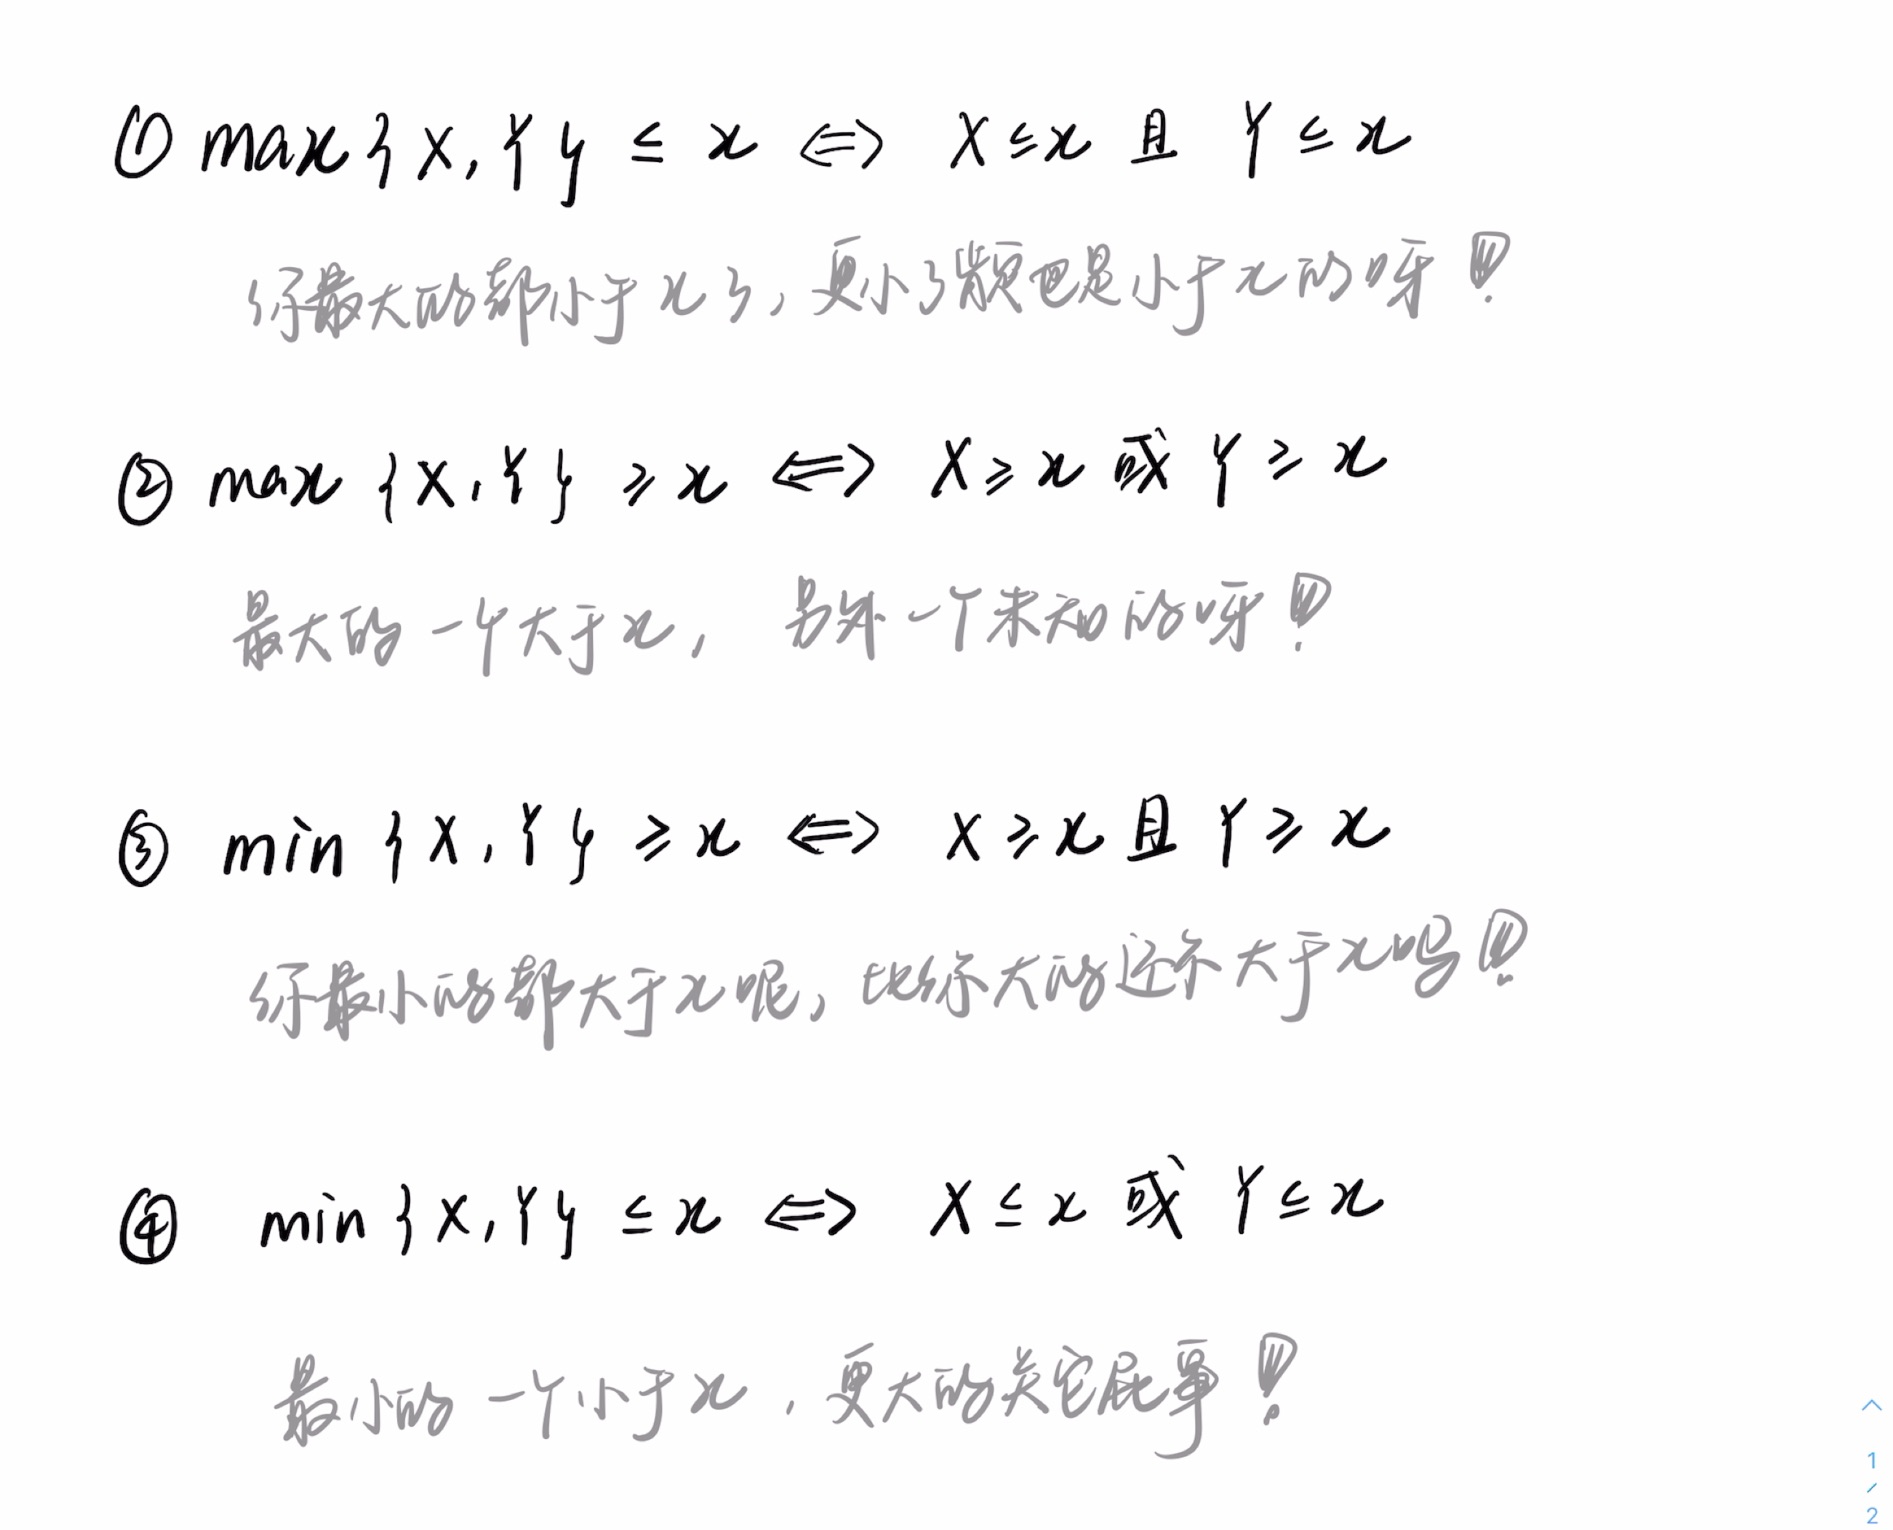 ① max{X,Y} ≤ x ⇔ X≤x 且 Y≤x
你最大的都小于x了,更小的肯定也是小于x的呀!
② max {X,Y} ≥ x ⇔ X≥x 或 Y≥x
最大的一个大于x, 另外一个未知的呀!
③ min {X,Y} ≥ x ⇔ X≥x 且 Y≥x
你最小的都大于x呢,比你大的还不大于x吗!
④ min {X,Y} ≤ x ⇔ X≤x 或 Y≤x
最小的一个小于x,更大的关它屁事!
1
/
2